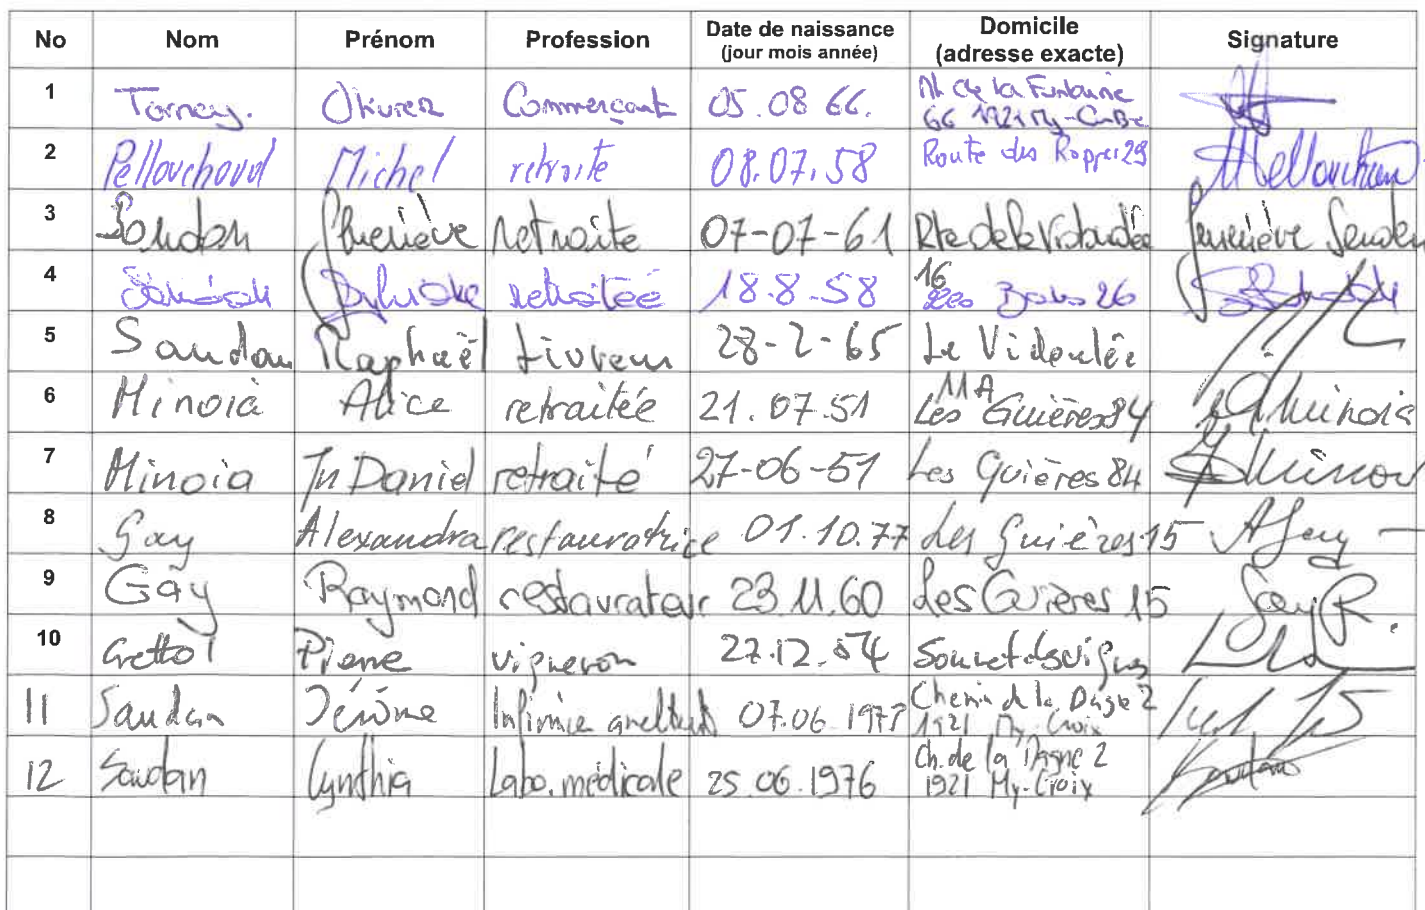 No Nom Prénom Profession Date de naissance (jour mois année) Domicile (adresse exacte) Signature
1 Tornay. Olivier Commerçant 05.08 66. de la Fontaine
66 1921 My-Croix
2 Pellouchoud Michel retraité 08.07.58 Route des Rappes 29 Pellouchoud
3 Saudan Geneviève retraite 07-07-61 Rte de la Vidondée Geneviève Saudan
16
4 Saudan retraitée 18.8.58 26
5 Saudan Raphaël Livreur 28-2-65 La Vidondée
11A
6 Minoia Alice retraitée 21.07.51 Les Guières 84 Minoia
7 Minoia Jn Daniel retraité 27-06-51 Les Guières 84 Minoia
8 Gay Alexandra restauratrice 01.10.77 Les Guières 15 A Gay
9 Gay Raymond restaurateur 23.11.60 Les Guières 15 Gay R.
10 Crettol Pierre vigneron 27.12.54 Sommet des vignes
11 Saudan Jérôme 07.06.1977 Chemin de la Dagne 2
1921 My-Croix
12 Saudan Cynthia Labo. médicale 25.06.1976 Ch. de la Dagne 2 Saudan
1921 My-Croix